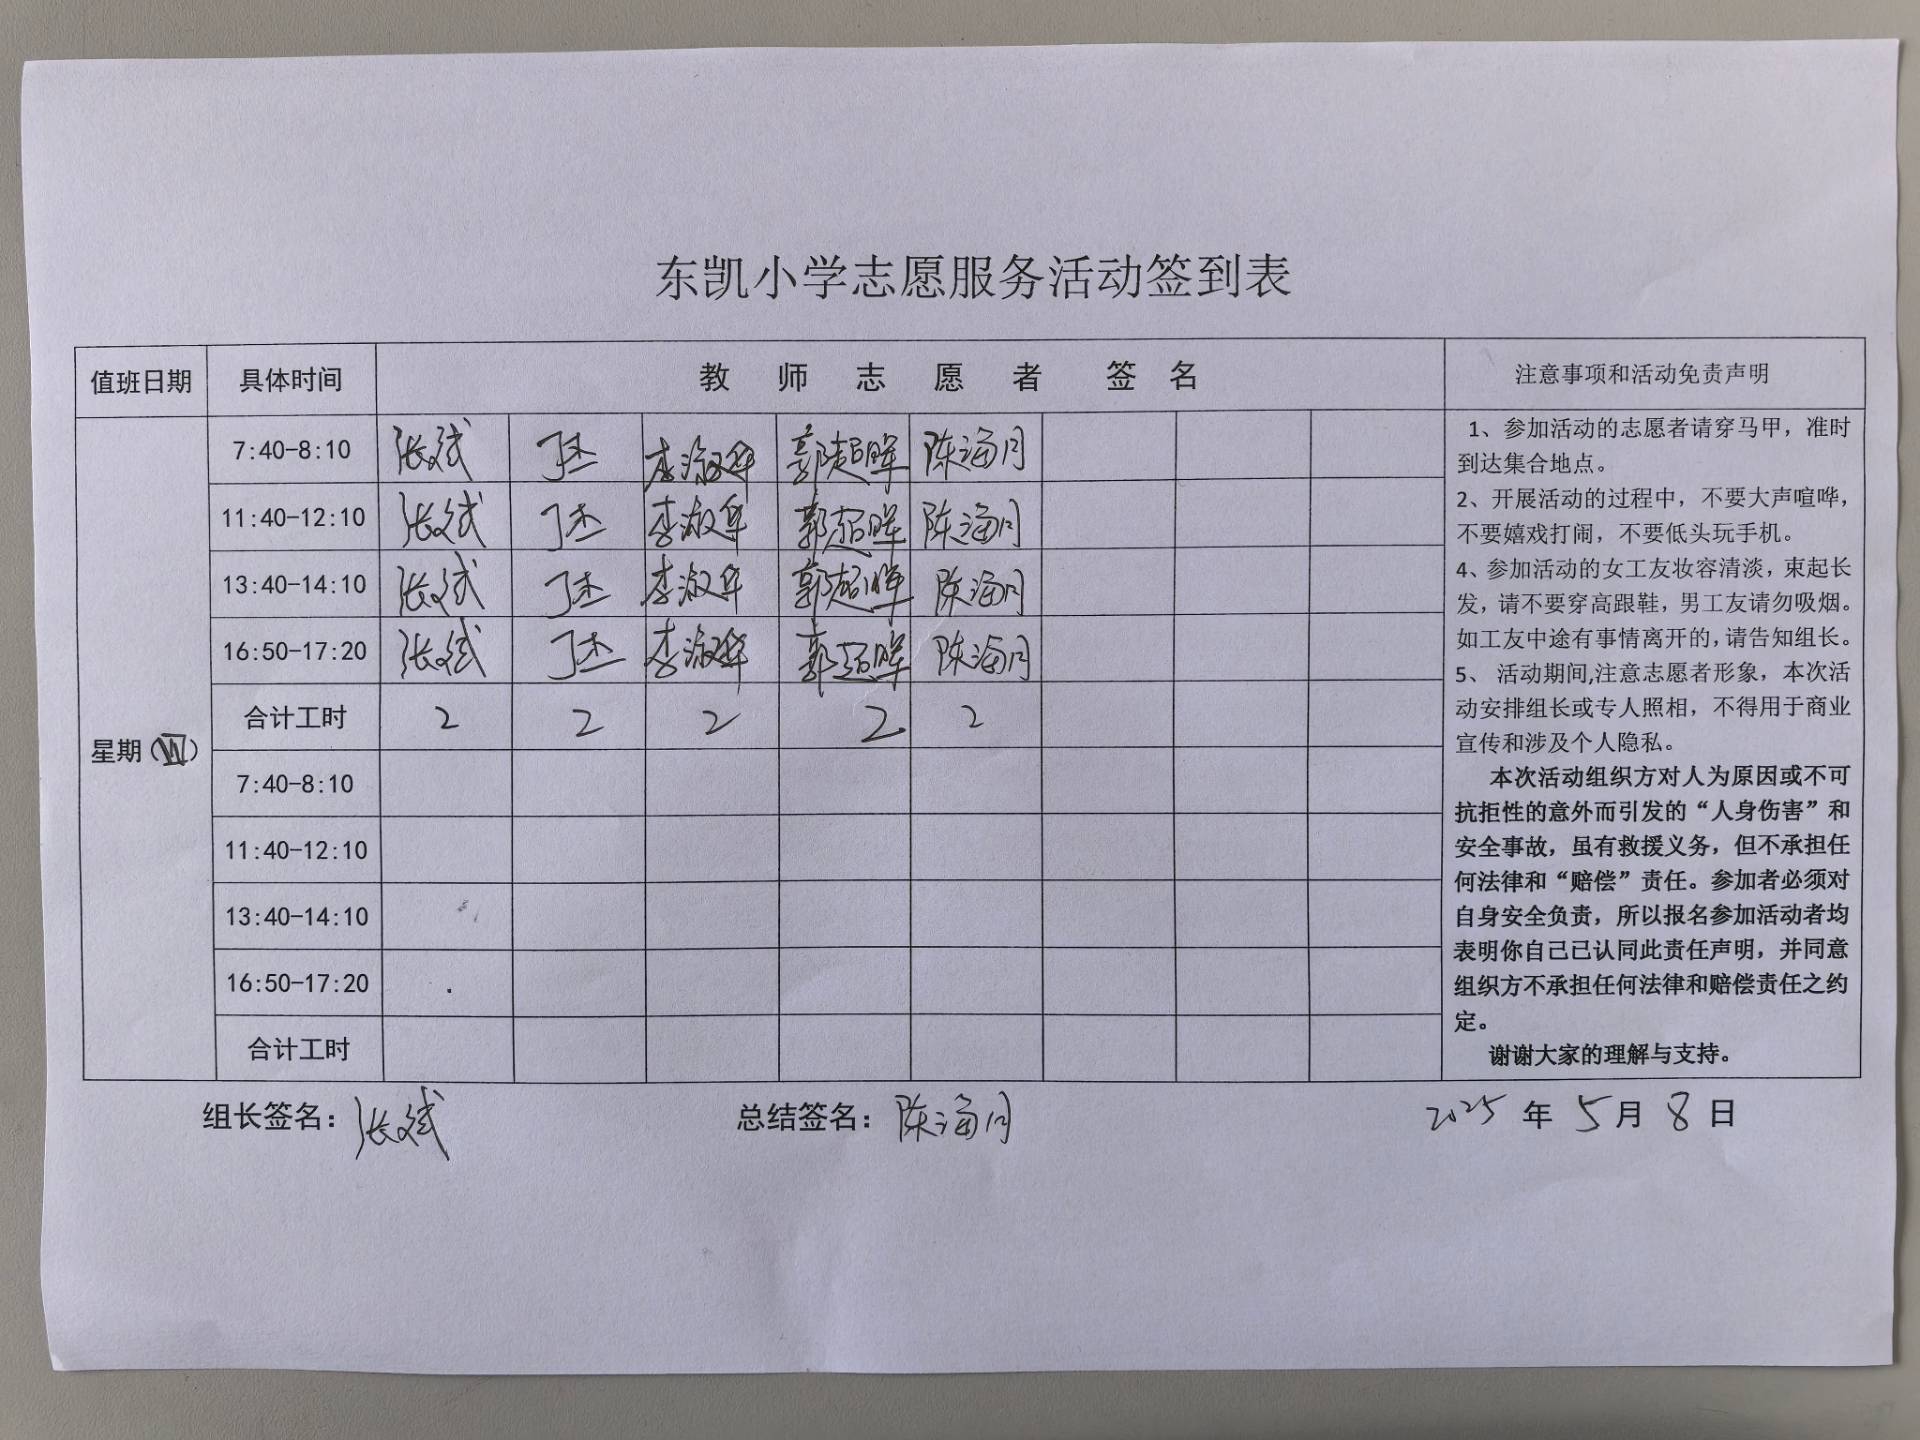 东凯小学志愿服务活动签到表
值班日期 具体时间 教师志愿者 签名 注意事项和活动免责声明
7:40-8:10 张斌 丁杰 李淑华 郭超晖 陈海月
11:40-12:10 张斌 丁杰 李淑华 郭超晖 陈海月
13:40-14:10 张斌 丁杰 李淑华 郭超晖 陈海月
16:50-17:20 张斌 丁杰 李淑华 郭超晖 陈海月
合计工时 2 2 2 2 2
星期(四)
7:40-8:10
11:40-12:10
13:40-14:10
16:50-17:20
合计工时
1、参加活动的志愿者请穿马甲，准时
到达集合地点。
2、开展活动的过程中，不要大声喧哗，
不要嬉戏打闹，不要低头玩手机。
4、参加活动的女工友妆容清淡，束起长
发，请不要穿高跟鞋，男工友请勿吸烟。
如工友中途有事情离开的，请告知组长。
5、 活动期间,注意志愿者形象，本次活
动安排组长或专人照相，不得用于商业
宣传和涉及个人隐私。
本次活动组织方对人为原因或不可
抗拒性的意外而引发的“人身伤害”和
安全事故，虽有救援义务，但不承担任
何法律和“赔偿”责任。参加者必须对
自身安全负责，所以报名参加活动者均
表明你自己已认同此责任声明，并同意
组织方不承担任何法律和赔偿责任之约
定。
谢谢大家的理解与支持。
组长签名：张斌 总结签名：陈海月 2025年5月8日